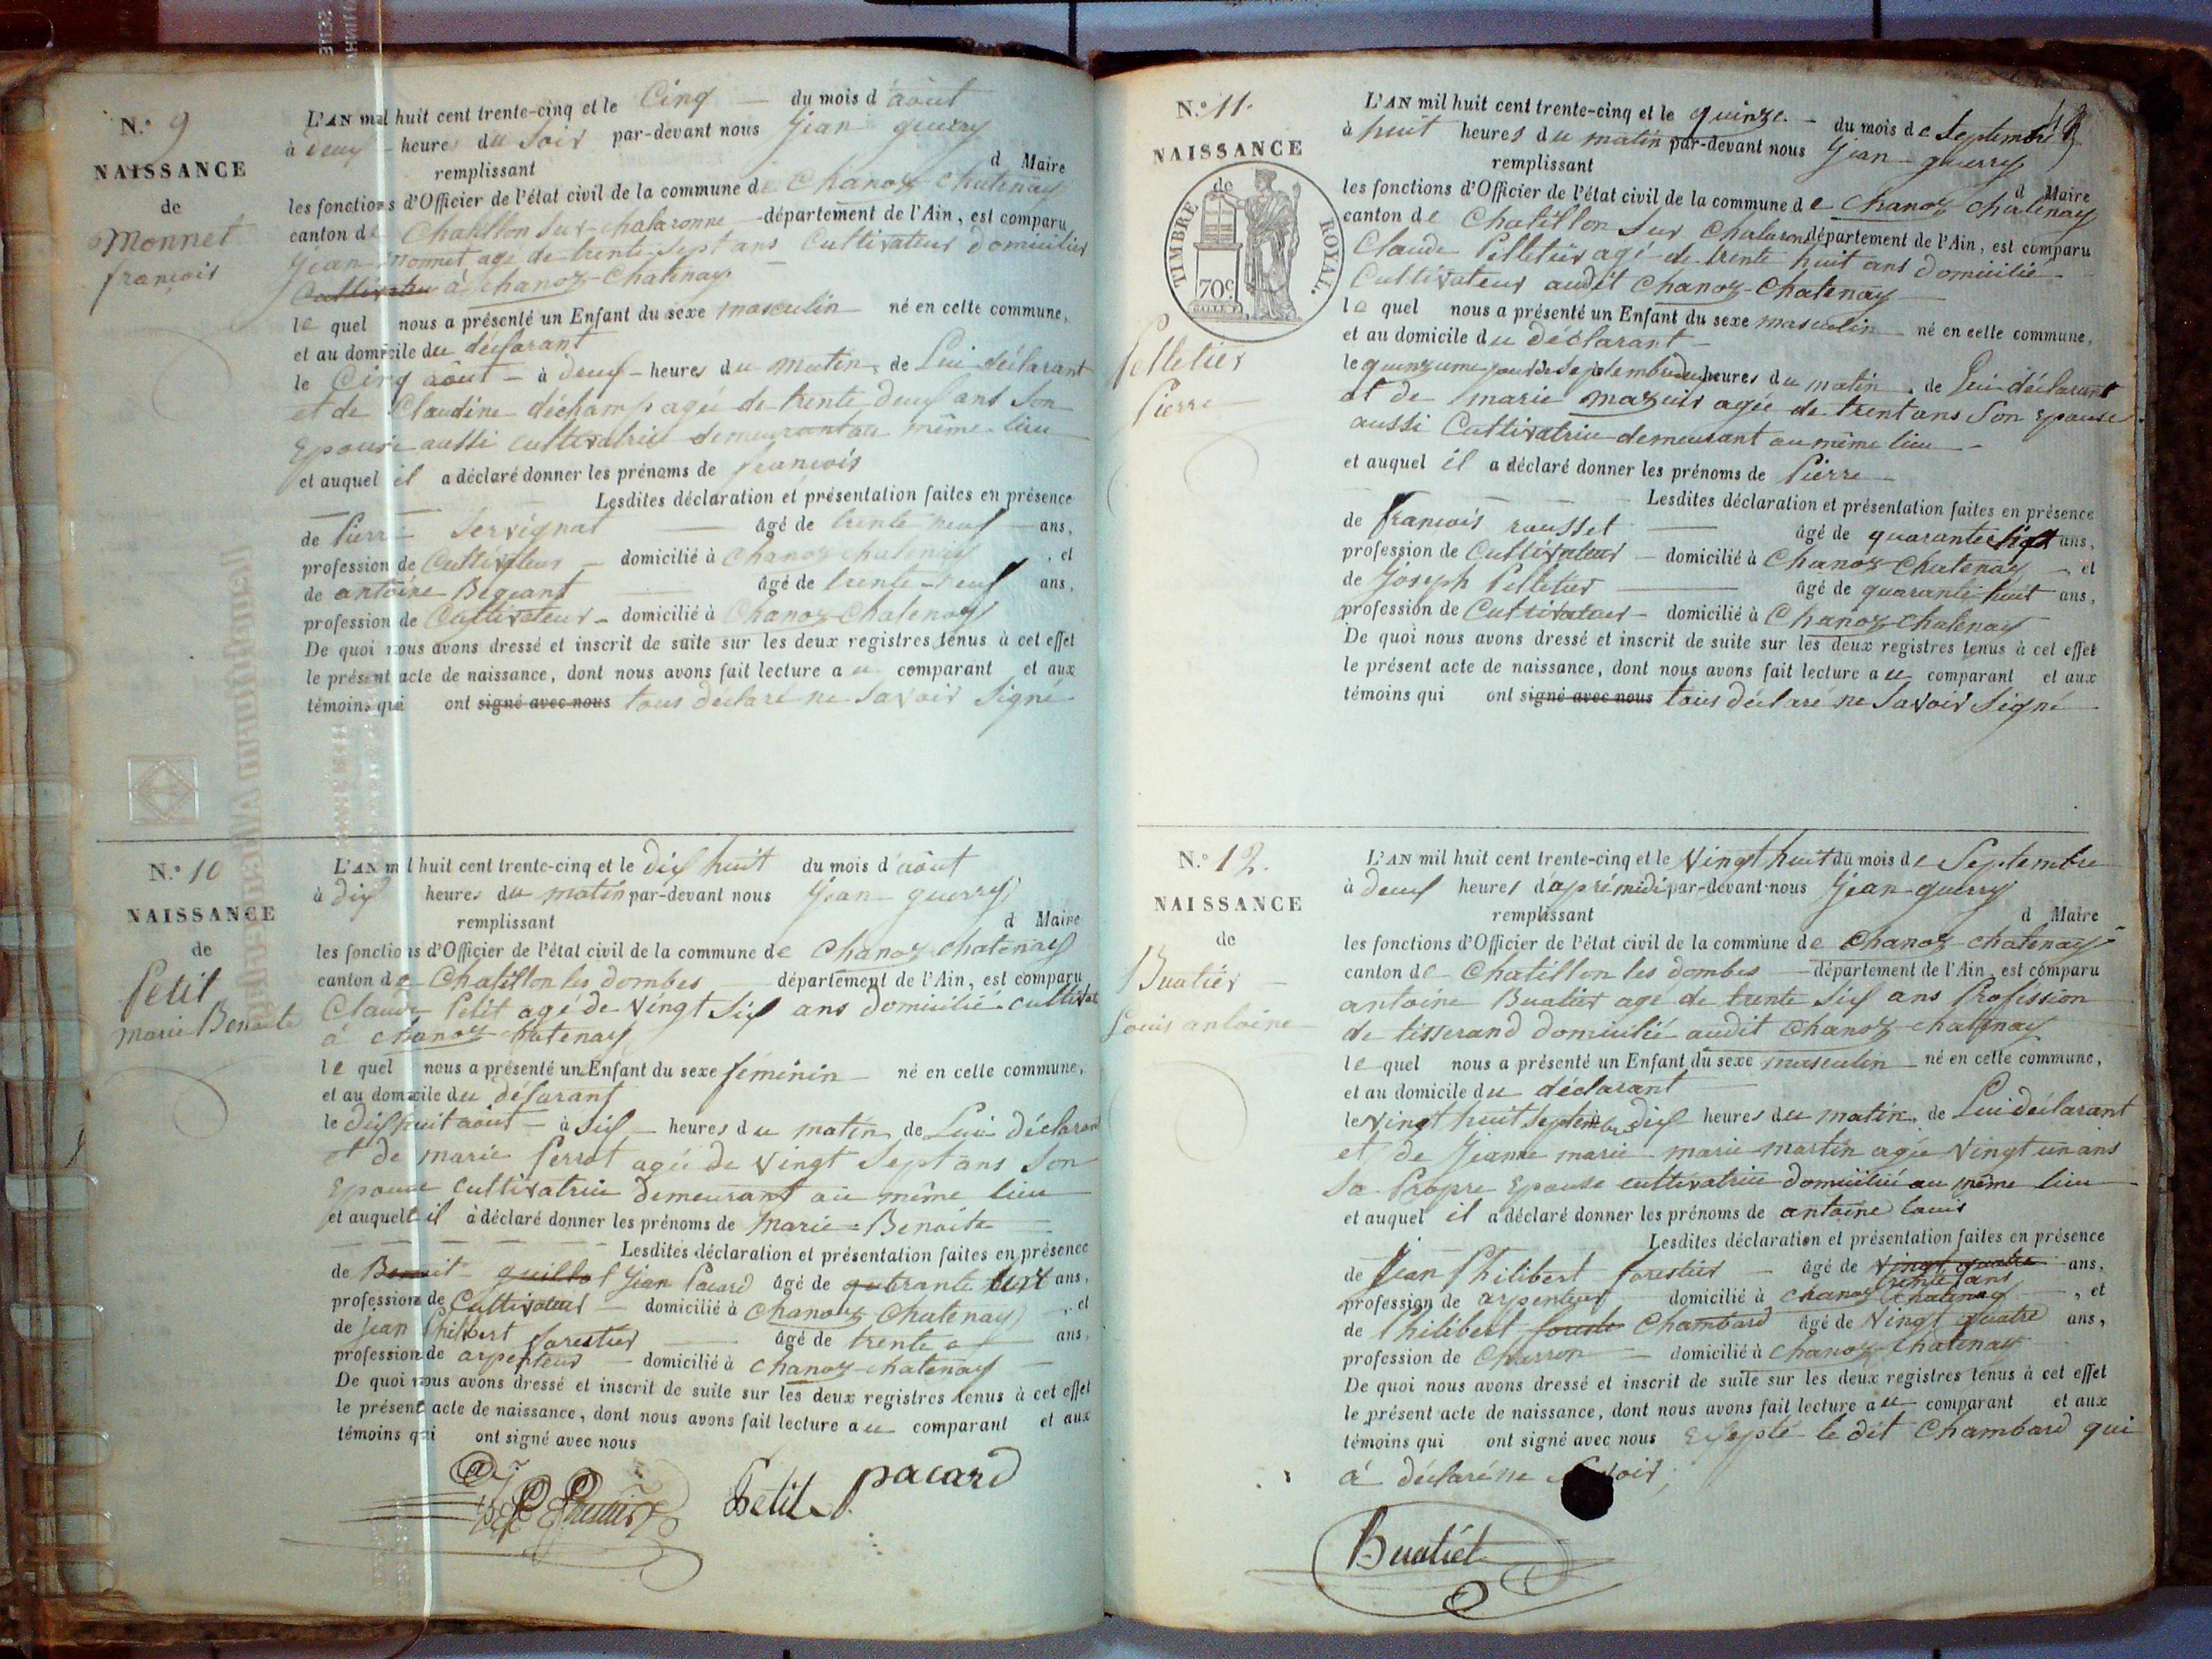 N.° 9
NAISSANCE
de
Monnet
françois
L'AN mil huit cent trente-cinq et le Cinq du mois d'août
à deux heures du Soir par-devant nous Jean guerry
remplissant d Maire
les fonctions d'Officier de l'état civil de la commune de Chanoz-Chatenay
canton de Chatillon Sur-chalaronne département de l'Ain, est comparu
Jean monnet agé de trente Sept ans Cultivateur domicilier
Cultivateu à Chanoz-Chatenay
le quel nous a présenté un Enfant du sexe masculin né en cette commune,
et au domicile du déclarant
le Cinq août à deux heures du matin, de Lui déclarant
et de Claudine déchamp agée de trente deux ans Son
Epouse aussi cultivatrice demeurant au même lieu
et auquel il a déclaré donner les prénoms de françois
Lesdites déclaration et présentation faites en présence
de Pierre Servignat âgé de trente neuf ans,
profession de Cultivateur domicilié à Chanoz chatenay, et
de antoine Begeant âgé de trente-neuf ans,
profession de Cultivateur domicilié à Chanoz-Chatenay
De quoi nous avons dressé et inscrit de suite sur les deux registres tenus à cet effet
le présent acte de naissance, dont nous avons fait lecture au comparant et aux
témoins qui ont signé avec nous tous déclaré ne Savoir Signé
N.° 10
NAISSANCE
de
Petit
Marie Benoite
L'AN mil huit cent trente-cinq et le dix huit du mois d'août
à dix heures du matin par-devant nous Jean guerry
remplissant d Maire
les fonctions d'Officier de l'état civil de la commune de Chanoz-chatenay
canton de Chatillon les dombes département de l'Ain, est comparu
Claude Petit agé de Vingt Six ans domicilié cultivat
à chanoz chatenay
le quel nous a présenté un Enfant du sexe féminin né en cette commune,
et au domicile du déclarant
le dix huit août à Six heures du matin, de Lui Déclarant
et de marie Perrot agée de Vingt Sept ans Son
Epouse cultivatrice demeurant au même lieu
et auquelle il a déclaré donner les prénoms de Marie-Benoite
Lesdites déclaration et présentation faites en présence
de Benoit guillot Jean Pacard âgé de ans,
profession de Cultivateur domicilié à Chanoz Chatenay, et
de Jean Philibert forestier âgé de trente ans,
profession de arpenteur domicilié à Chanoz-chatenay
De quoi nous avons dressé et inscrit de suite sur les deux registres tenus à cet effet
le présent acte de naissance, dont nous avons fait lecture au comparant et aux
témoins qui ont signé avec nous
Petit pacard
N.° 11.
NAISSANCE
de
TIMBRE ROYAL.
70c
Pelletier
Pierre
L'AN mil huit cent trente-cinq et le quinze du mois de Septembre
à huit heures du matin par-devant nous Jean guerry
remplissant d Maire
les fonctions d'Officier de l'état civil de la commune de Chanoz chatenay
canton de Chatillon Sur Chalaronne département de l'Ain, est comparu
Claude Pelletier agé de trente huit ans domicilié
Cultivateur audit Chanoz-Chatenay
le quel nous a présenté un Enfant du sexe masculin né en cette commune,
et au domicile du déclarant
le quinzieme jour de Septembre heures du matin, de Lui déclarant
et de marie mazuir agée de trent ans Son Epouse
aussi Cultivatrice demeurant au même lieu
et auquel il a déclaré donner les prénoms de Pierre
Lesdites déclaration et présentation faites en présence
de françois rousset âgé de quarante ans,
profession de Cultivateur domicilié à Chanoz-Chatenay, et
de Joseph Pelletier âgé de quarante huit ans,
profession de Cultivateur domicilié à Chanoz-chatenay
De quoi nous avons dressé et inscrit de suite sur les deux registres tenus à cet effet
le présent acte de naissance, dont nous avons fait lecture au comparant et aux
témoins qui ont signé avec nous tous déclaré ne Savoir Signé
N.° 12.
NAISSANCE
de
Buatier
Louis antoine
L'AN mil huit cent trente-cinq et le Vingt huit du mois de Septembre
à deux heures d'aprè midi par-devant nous Jean guerry
remplissant d Maire
les fonctions d'Officier de l'état civil de la commune de Chanoz-chatenay
canton de Chatillon les dombes département de l'Ain, est comparu
antoine Buatier agé de trente Six ans Profession
de tisserand domicilié audit Chanoz-chatenay
le quel nous a présenté un Enfant du sexe masculin né en cette commune,
et au domicile du déclarant
le Vingt huit Septembre à dix heures du matin, de Lui déclarant
et de Jeanne marie marie martin agée Vingt un ans
Sa Propre Epouse cultivatrice domiciliée au même lieu
et auquel il a déclaré donner les prénoms de antoine Louis
Lesdites déclaration et présentation faites en présence
de Jean Philibert forestier âgé de Vingt quatre ans,
trente ans
profession de arpenteur domicilié à Chanoz Chatenay, et
de Philibert Chambard âgé de Vingt quatre ans,
profession de Charron domicilié à Chanoz-Chatenay
De quoi nous avons dressé et inscrit de suite sur les deux registres tenus à cet effet
le présent acte de naissance, dont nous avons fait lecture au comparant et aux
témoins qui ont signé avec nous Exepté le dit Chambard qui
à déclaré ne Savoir,
Buatiét